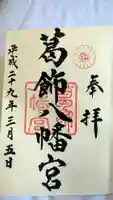 奉拝
葛飾八幡宮
平成二十九年三月五日